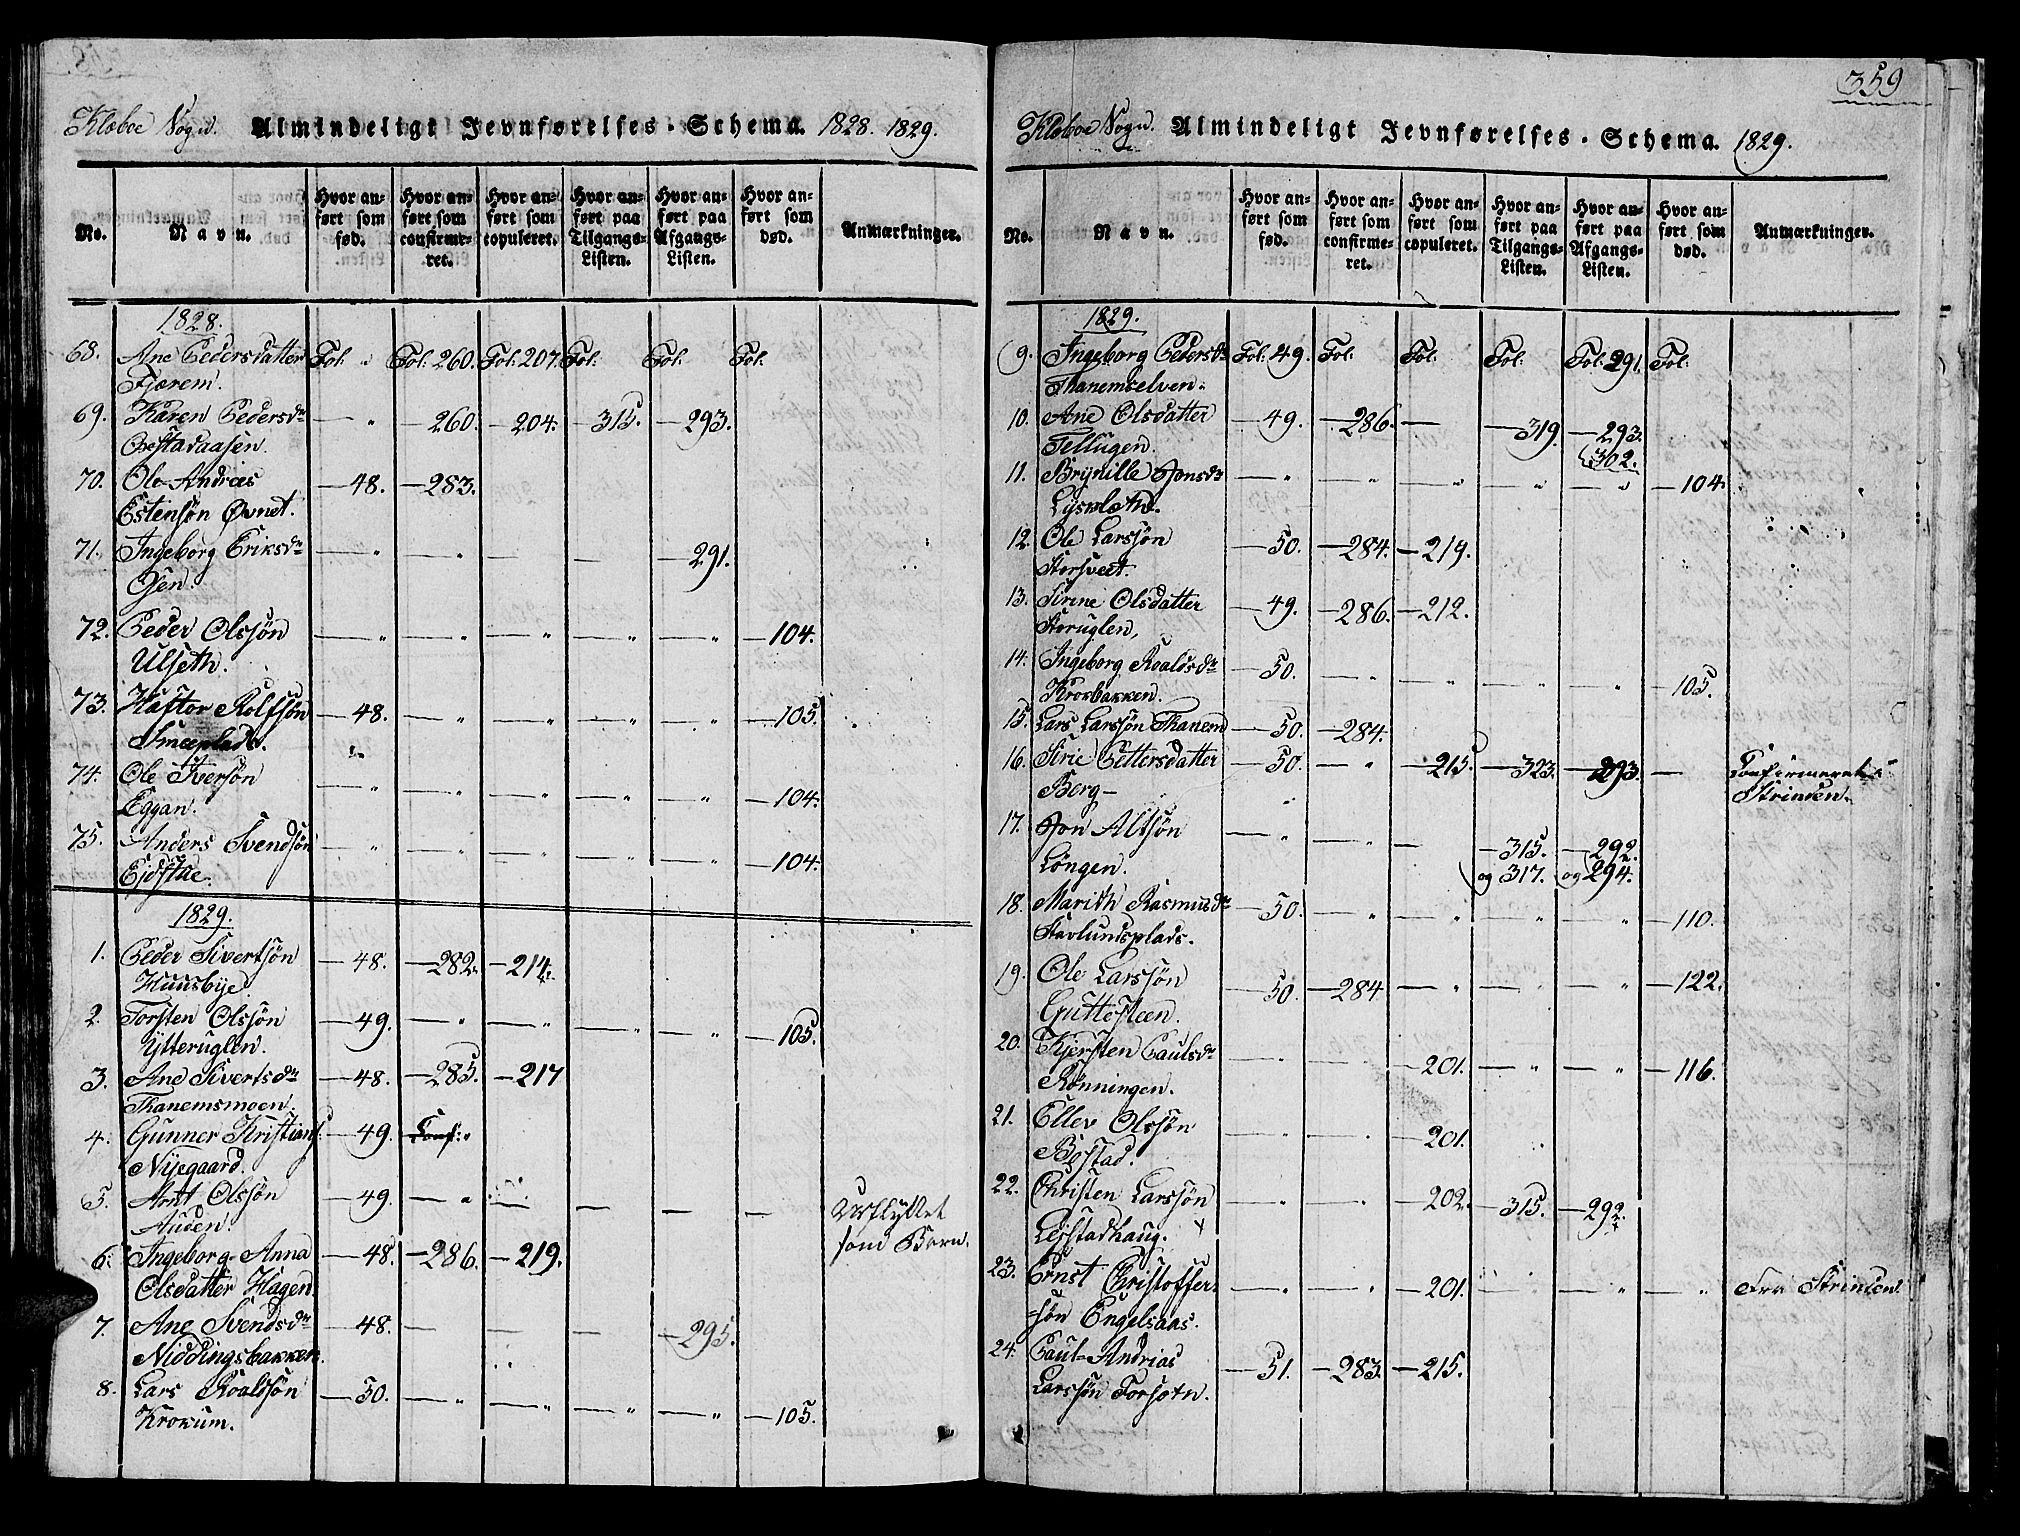 Klæboe Sogn. Almindeligt Jevnførelses-Schema. 1828. 1829.
No. Navn. Hvor anført som fød. Hvor anført som confirmeret. Hvor anført som copuleret. Hvor anført paa Tilgangs-Listen. Hvor anført paa Afgangs-Listen. Hvor anført som død. Anmærkninger.
1828.
68. Ane Pedersdatter Fol. " Fol: 260. Fol: 207. Fol: Fol: Fol:
Fjærem.
69. Karen Pedersdr — " — 260. — 204. — 315. — 293.
Bostadaasen.
70. Ole Andreas — 48. — 283.
Estensøn Øvnet.
71. Ingeborg Eriksdr — " — " — — — 291.
Osen.
72. Peder Olssøn — " — " — " — " — " — 104.
Ulseth.
73. Haftor Rolfsøn — 48. — " — " — " — " — 105.
Smeeplads.
74. Ole Iversøn — " — " — " — " — " — 104.
Eggan.
75. Anders Svendsøn — " — " — " — " — " — 104.
Ejdstue.
1829.
1. Peder Sivertsøn — 48. — 282. — 214.
Huusbye
2. Torsten Olssøn — 49. — " — " — " — " — 105.
Ytteruglen.
3. Ane Sivertsdr — 48. — 285. — 217
Thanemsmoen.
4. Gunner Kristians — 49. Conf: "
Nyegaard.
5. Arnt Olssøn — 49. — " — — — — Udflyttet
Auden. som Barn.
6. Ingeborg Anna — 48. — 286. — 219.
Olsdatter Hagen.
7. Ane Svendsdr — 48. — — — — 295.
Niddingsbakken.
8. Lars Roaldsøn — 50. — " — " — " — " — 105.
Krokum.
359
Klæboe Sogn. Almindeligt Jevnførelses-Schema. 1829.
No. Navn. Hvor anført som fød. Hvor anført som confirmeret. Hvor anført som copuleret. Hvor anført paa Tilgangs-Listen. Hvor anført paa Afgangs-Listen. Hvor anført som død. Anmærkninger.
1829.
9. Ingeborg Pedersdr Fol: 49. Fol: Fol: Fol: Fol: 291. Fol:
Thanemselven.
10. Ane Olsdatter — 49. — 286. — — 319. — 293.
Tellugen. 302.
11. Brynille Jonsdr — " — " — " — " — " — 104.
Lysklæth.
12. Ole Larssøn — 50. — 284. — 219.
Storsveet.
13. Sirine Olsdatter — 49. — 286. — 212.
Storuglen,
14. Ingeborg Roaldsdr — 50. — " — " — " — " — 105.
Krokbakken.
15. Lars Larssøn Thanem — 50. — 284.
16. Sirie Pettersdatter — 50. — " — 215. — 323. — 293. — Confirmeret i
Berg — Strinden.
17. Jon Altsøn — " — " — — 315. — 292.
Løngen. og 317. og 294.
18. Marith Rasmusdr — 50. — " — " — " — " — 110.
Havlundsplads.
19. Ole Larssøn — 50. — 284. — " — " — " — 122.
Guttesteen.
20. Kjersten Paulsdr — " — " — 201. — " — " — 116.
Rønningen.
21. Ellev Olssøn — " — " — 201.
Bostad.
22. Christen Larssøn — " — " — 202. — 315. — 292.
Lejstadhaug.
23. Ernst Christoffer- — " — " — 201. — " — " — " Fra Strinden.
søn Engelsaas.
24. Paul Andrias — 51. — 283. — 215.
Larssøn Forsætn.